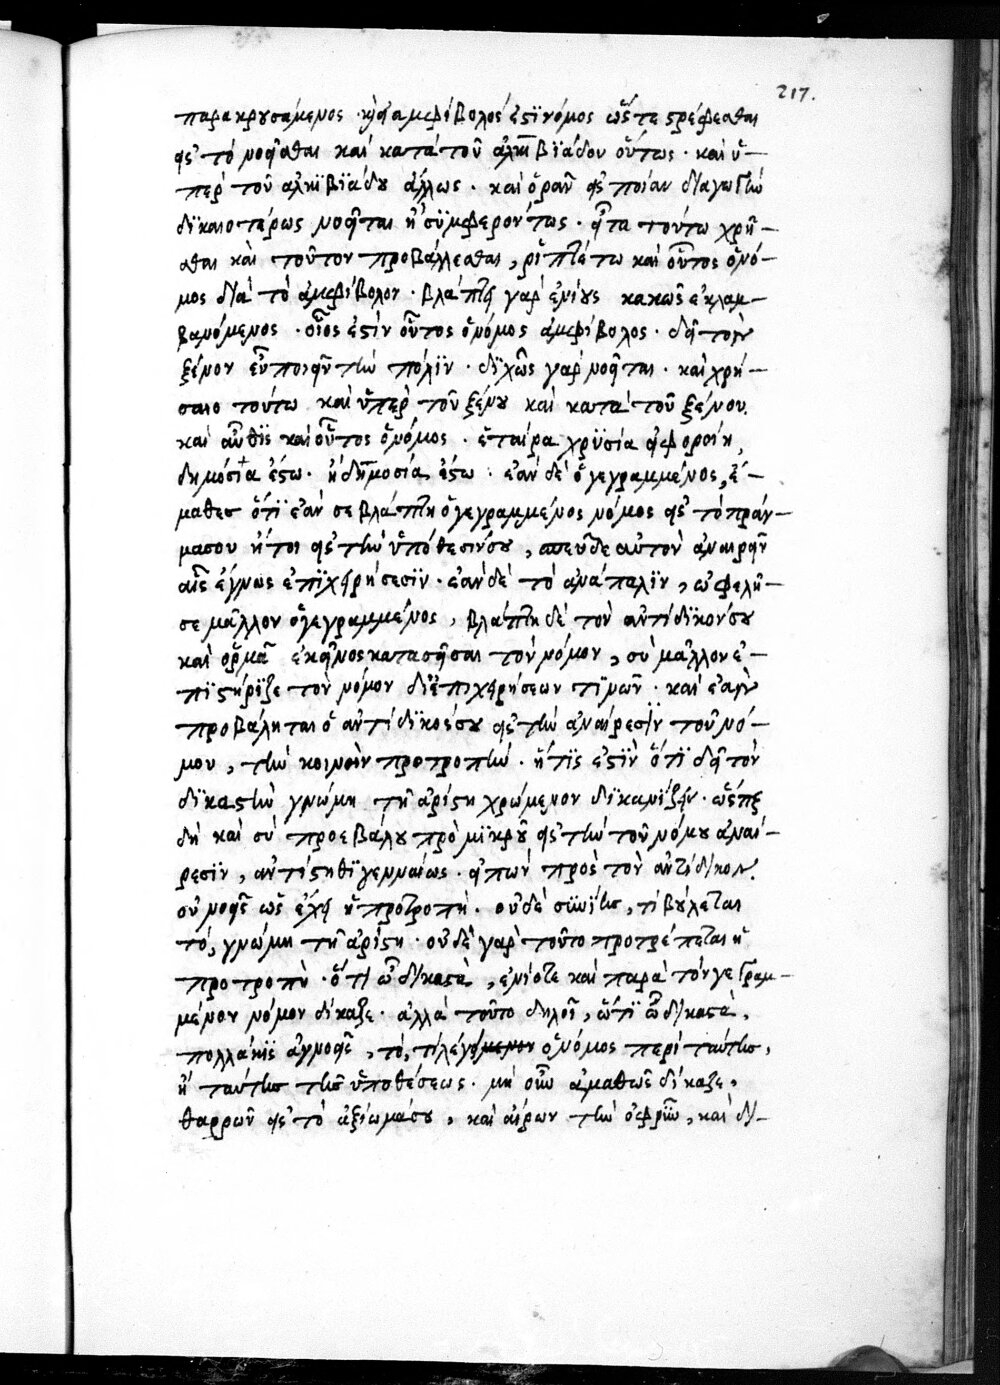 217.
παρακρυσάμενος. κἂν ἀμφίβολός ἐστι νόμος ὥστε στρέφεσθαι
εἰς τὸ νοεῖσθαι καὶ κατὰ τοῦ ἀλκιβϊάδου οὕτως. καὶ ὑ-
πὲρ τοῦ ἀλκιβϊάδου ἄλλως. καὶ ὅραν εἰς ποίαν διαγωγὴν
δϊκαιοτέρως νοεῖται ἢ συμφερόντως. εἶτα τούτω χρῆ-
σθαι καὶ τοῦτον προβάλλεσθαι, ῥιπτέτω καὶ οὗτος ὁ νό-
μος διὰ τὸ ἀμφίβολον. βλάπτει γὰρ ἐνίους κακῶς ἐκλαμ-
βανόμενος. οἷός ἐστιν οὗτος ὁ νόμος ἀμφίβολος. δεῖ τὸν
ξένον εὖ ποιεῖν τὴν πόλϊν. δϊχῶς γὰρ νοεῖται. καὶ χρή-
σαιο τούτω καὶ ὑπὲρ τοῦ ξένου καὶ κατὰ τοῦ ξένου.
καὶ αὖθϊς καὶ οὗτος ὁ νόμος. ἑταίρα χρϋσία εἰ φοροίη,
δημόσια ἔστω. ἢ δημοσία ἔστω. ἐὰν δὲ ὁ γεγραμμένος, ἔ-
μαθες ὅτϊ ἐάν σε βλάπτη ὁ γεγραμμένος νόμος εἰς τὸ πρᾶγ-
μα σου ἤτοι εἰς τὴν ὑπόθεσίν σου, σπεῦδε αὐτὸν ἀναιρεῖν
αἷς ἔγνως ἐπϊχειρήσεσϊν. ἐὰν δὲ τὸ ἀνάπαλϊν, ὠφελῆ-
σε μᾶλλον ὁ γεγραμμένος, βλάπτη δὲ τὸν ἀντίδϊκόν σου
καὶ ὁρμᾶ ἐκεῖνος κατασεῖσαι τὸν νόμον, σὺ μᾶλλον ἐ-
πϊστήρϊζε τὸν νόμον δι' ἐπιχειρήσεων τϊμῶν. καὶ ἐὰν
προβάληται ὁ ἀντίδϊκός σου εἰς τὴν ἀναίρεσϊν τοῦ νό-
μου, τὴν κοινὴν προτροπὴν. ἥτϊς ἐστϊν ὅτϊ δεῖ τὸν
δϊκαστὴν γνώμη τῆ ἀρίστη χρώμενον δϊκανίζειν. ὥσπερ
δὴ καὶ σὺ προεβάλου πρὸ μϊκροῦ εἰς τὴν τοῦ νόμου ἀναί-
ρεσϊν, ἀντίστηθϊ γενναίως. εἰπὼν πρὸς τὸν ἀντίδικον.
οὐ νοεῖς ὡς ἔχει ἡ προτροπὴ. οὐδὲ συνίης, τί βούλεται
τό, γνώμη τῆ ἀρίστη. οὐδὲ γὰρ τοῦτο προτρέπεται ἡ
προτροπὴ. ὅτι ὦ δικαστὰ, ἐνίοτε καὶ παρὰ τὸν γεγραμ-
μένον νόμον δίκαζε. ἀλλὰ τοῦτο δηλοῖ, ὅτι ὦ δικαστὰ,
πολλάκϊς ἀγνοεῖς, τό, τί λέγει ὁ νόμος περὶ ταύτης,
ἢ ταύτης τῆς ὑποθέσεως. μὴ οὖν ἀμαθῶς δίκαζε,
θαρρῶν εἰς τὸ ἀξίωμά σου, καὶ αἴρων τὴν ὀφρῦν, καὶ δι-